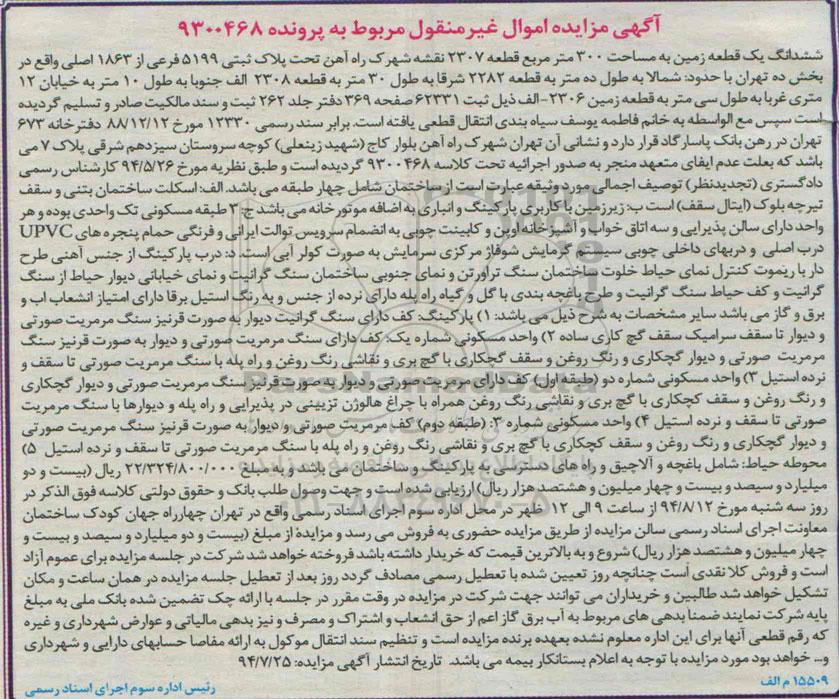 آگهی مزایده اموال غیرمنقول مربوط به پرونده ۹۳۰۰۴۶۸
ششدانگ یک قطعه زمین به مساحت ۳۰۰ متر مربع قطعه ۲۳۰۷ نقشه شهرک راه آهن تحت پلاک ثبتی ۵۱۹۹ فرعی از ۱۸۶۳ اصلی واقع در
بخش ده تهران با حدود: شمالا به طول ده متر به قطعه ۲۲۸۲ شرقا به طول ۳۰ متر به قطعه ۲۳۰۸ الف جنوبا به طول ۱۰ متر به خیابان ۱۲
متری غربا به طول سی متر به قطعه زمین ۲۳۰۶-الف ذیل ثبت ۶۲۳۳۱ صفحه ۳۶۹ دفتر جلد ۲۶۲ ثبت و سند مالکیت صادر و تسلیم گردیده
است سپس مع الواسطه به خانم فاطمه یوسف سیاه بندی انتقال قطعی یافته است. برابر سند رسمی ۱۲۳۳۰ مورخ ۸۸/۱۲/۱۲ دفترخانه ۶۷۳
تهران در رهن بانک پاسارگاد قرار دارد و نشانی آن تهران شهرک راه آهن بلوار کاج (شهید زینعلی) کوچه سروستان سیزدهم شرقی پلاک ۷ می
باشد که بعلت عدم ایفای متعهد منجر به صدور اجرائیه تحت کلاسه ۹۳۰۰۴۶۸ گردیده است و طبق نظریه مورخ ۹۴/۵/۲۶ کارشناس رسمی
دادگستری (تجدیدنظر) توصیف اجمالی مورد وثیقه عبارت است از ساختمان شامل چهار طبقه می باشد. الف: اسکلت ساختمان بتنی و سقف
تیرچه بلوک (ایتال سقف) است ب: زیرزمین با کاربری پارکینگ و انباری به اضافه موتورخانه می باشد ج: ۳ طبقه مسکونی تک واحدی بوده و هر
واحد دارای سالن پذیرایی و سه اتاق خواب و آشپزخانه اوپن و کابینت چوبی به انضمام سرویس توالت ایرانی و فرنگی حمام پنجره های UPVC
درب اصلی و دربهای داخلی چوبی سیستم گرمایش شوفاژ مرکزی سرمایش به صورت کولر آبی است. د: درب پارکینگ از جنس آهنی طرح
دار با ریموت کنترل نمای حیاط خلوت ساختمان سنگ تراورتن و نمای جنوبی ساختمان سنگ گرانیت و نمای خیابانی دیوار حیاط از سنگ
گرانیت و کف حیاط سنگ گرانیت و طرح باغچه بندی با گل و گیاه راه پله دارای نرده از جنس و به رنگ استیل برقا دارای امتیاز انشعاب آب و
برق و گاز می باشد سایر مشخصات به شرح ذیل می باشد: ۱) پارکینگ: کف دارای سنگ گرانیت دیوار به صورت قرنیز سنگ مرمریت صورتی
و دیوار تا سقف سرامیک سقف گچ کاری ساده ۲) واحد مسکونی شماره یک: کف دارای سنگ مرمریت صورتی و دیوار به صورت قرنیز سنگ
مرمریت صورتی و دیوار گچکاری و رنگ روغن و سقف گچکاری با گچ بری و نقاشی رنگ روغن و راه پله با سنگ مرمریت صورتی تا سقف و
نرده استیل ۳) واحد مسکونی شماره دو (طبقه اول) کف دارای مرمریت صورتی و دیوار به صورت قرنیز سنگ مرمریت صورتی و دیوار گچکاری
و رنگ روغن و سقف گچکاری با گچ بری و نقاشی رنگ روغن همراه با چراغ هالوژن تزیینی در پذیرایی و راه پله و دیوارها با سنگ مرمریت
صورتی تا سقف و نرده استیل ۴) واحد مسکونی شماره ۳: (طبقه دوم) کف مرمریت صورتی و دیوار به صورت قرنیز سنگ مرمریت صورتی
و دیوار گچکاری و رنگ روغن و سقف کچکاری با گچ بری و نقاشی رنگ روغن و راه پله با سنگ مرمریت صورتی تا سقف و نرده استیل ۵)
محوطه حیاط: شامل باغچه و آلاچیق و راه های دسترسی به پارکینگ و ساختمان می باشد و به مبلغ ۲۲/۳۲۴/۸۰۰/۰۰۰ ریال (بیست و دو
میلیارد و سیصد و بیست و چهار میلیون و هشتصد هزار ریال) ارزیابی شده است و جهت وصول طلب بانک و حقوق دولتی کلاسه فوق الذکر در
روز سه شنبه مورخ ۹۴/۸/۱۲ از ساعت ۹ الی ۱۲ ظهر در محل اداره سوم اجرای اسناد رسمی واقع در تهران چهارراه جهان کودک ساختمان
معاونت اجرای اسناد رسمی سالن مزایده از طریق مزایده حضوری به فروش می رسد و مزایده از مبلغ (بیست و دو میلیارد و سیصد و بیست و
چهار میلیون و هشتصد هزار ریال) شروع و به بالاترین قیمت که خریدار داشته باشد فروخته خواهد شد شرکت در جلسه مزایده برای عموم آزاد
است و فروش کلا نقدی است چنانچه روز تعیین شده با تعطیل رسمی مصادف گردد روز بعد از تعطیل جلسه مزایده در همان ساعت و مکان
تشکیل خواهد شد طالبین و خریداران می توانند جهت شرکت در مزایده در وقت مقرر در جلسه با ارائه چک تضمین شده بانک ملی به مبلغ
پایه شرکت نمایند ضمنا بدهی های مربوط به آب برق گاز اعم از حق انشعاب و اشتراک و مصرف و نیز بدهی مالیاتی و عوارض شهرداری و غیره
که رقم قطعی آنها برای این اداره معلوم نشده بعهده برنده مزایده است و تنظیم سند انتقال موکول به ارائه مفاصا حسابهای دارایی و شهرداری
و... خواهد بود مورد مزایده با توجه به اعلام بستانکار بیمه می باشد. تاریخ انتشار آگهی مزایده: ۹۴/۷/۲۵
۱۵۵۰۹ م الف
رئیس اداره سوم اجرای اسناد رسمی